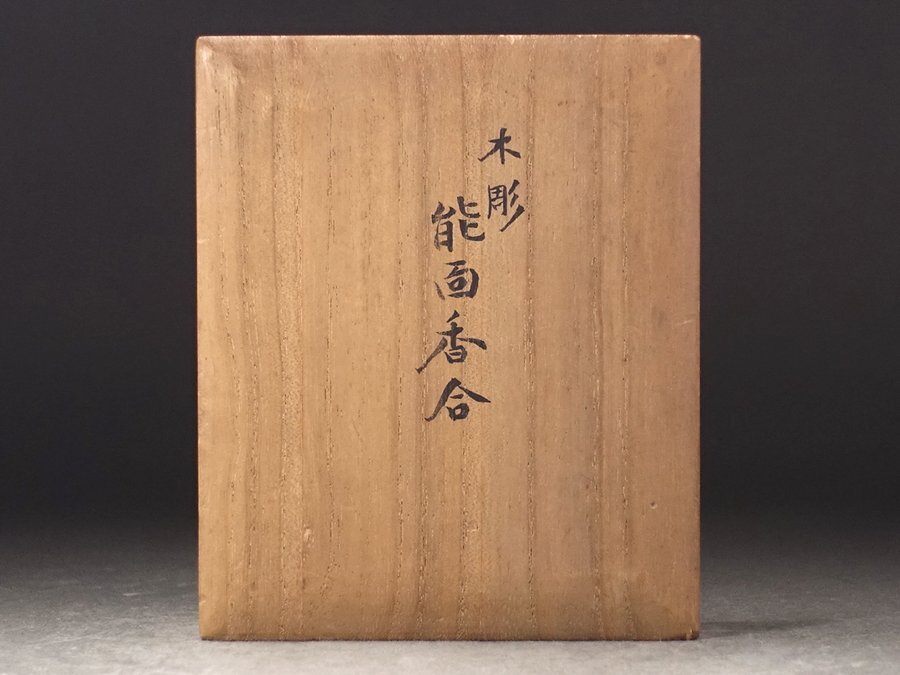 木彫
能面香合